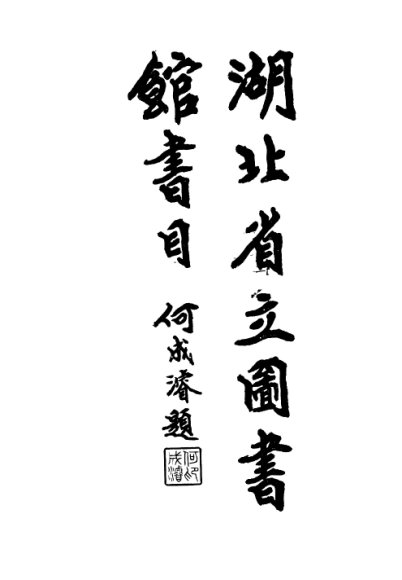 湖北省立圖書
館書目
何成濬題
何成濬印